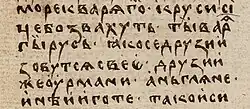 мореκъварѧгом҃ъ · крꙋси · си
це бо звахуть · ты варѧ
гы рꙋсь · ꙗко се дрꙋзии
зовутсѧ свее · дрꙋзии
же оурмани · аньглѧне ·
ини и готе · тако и си